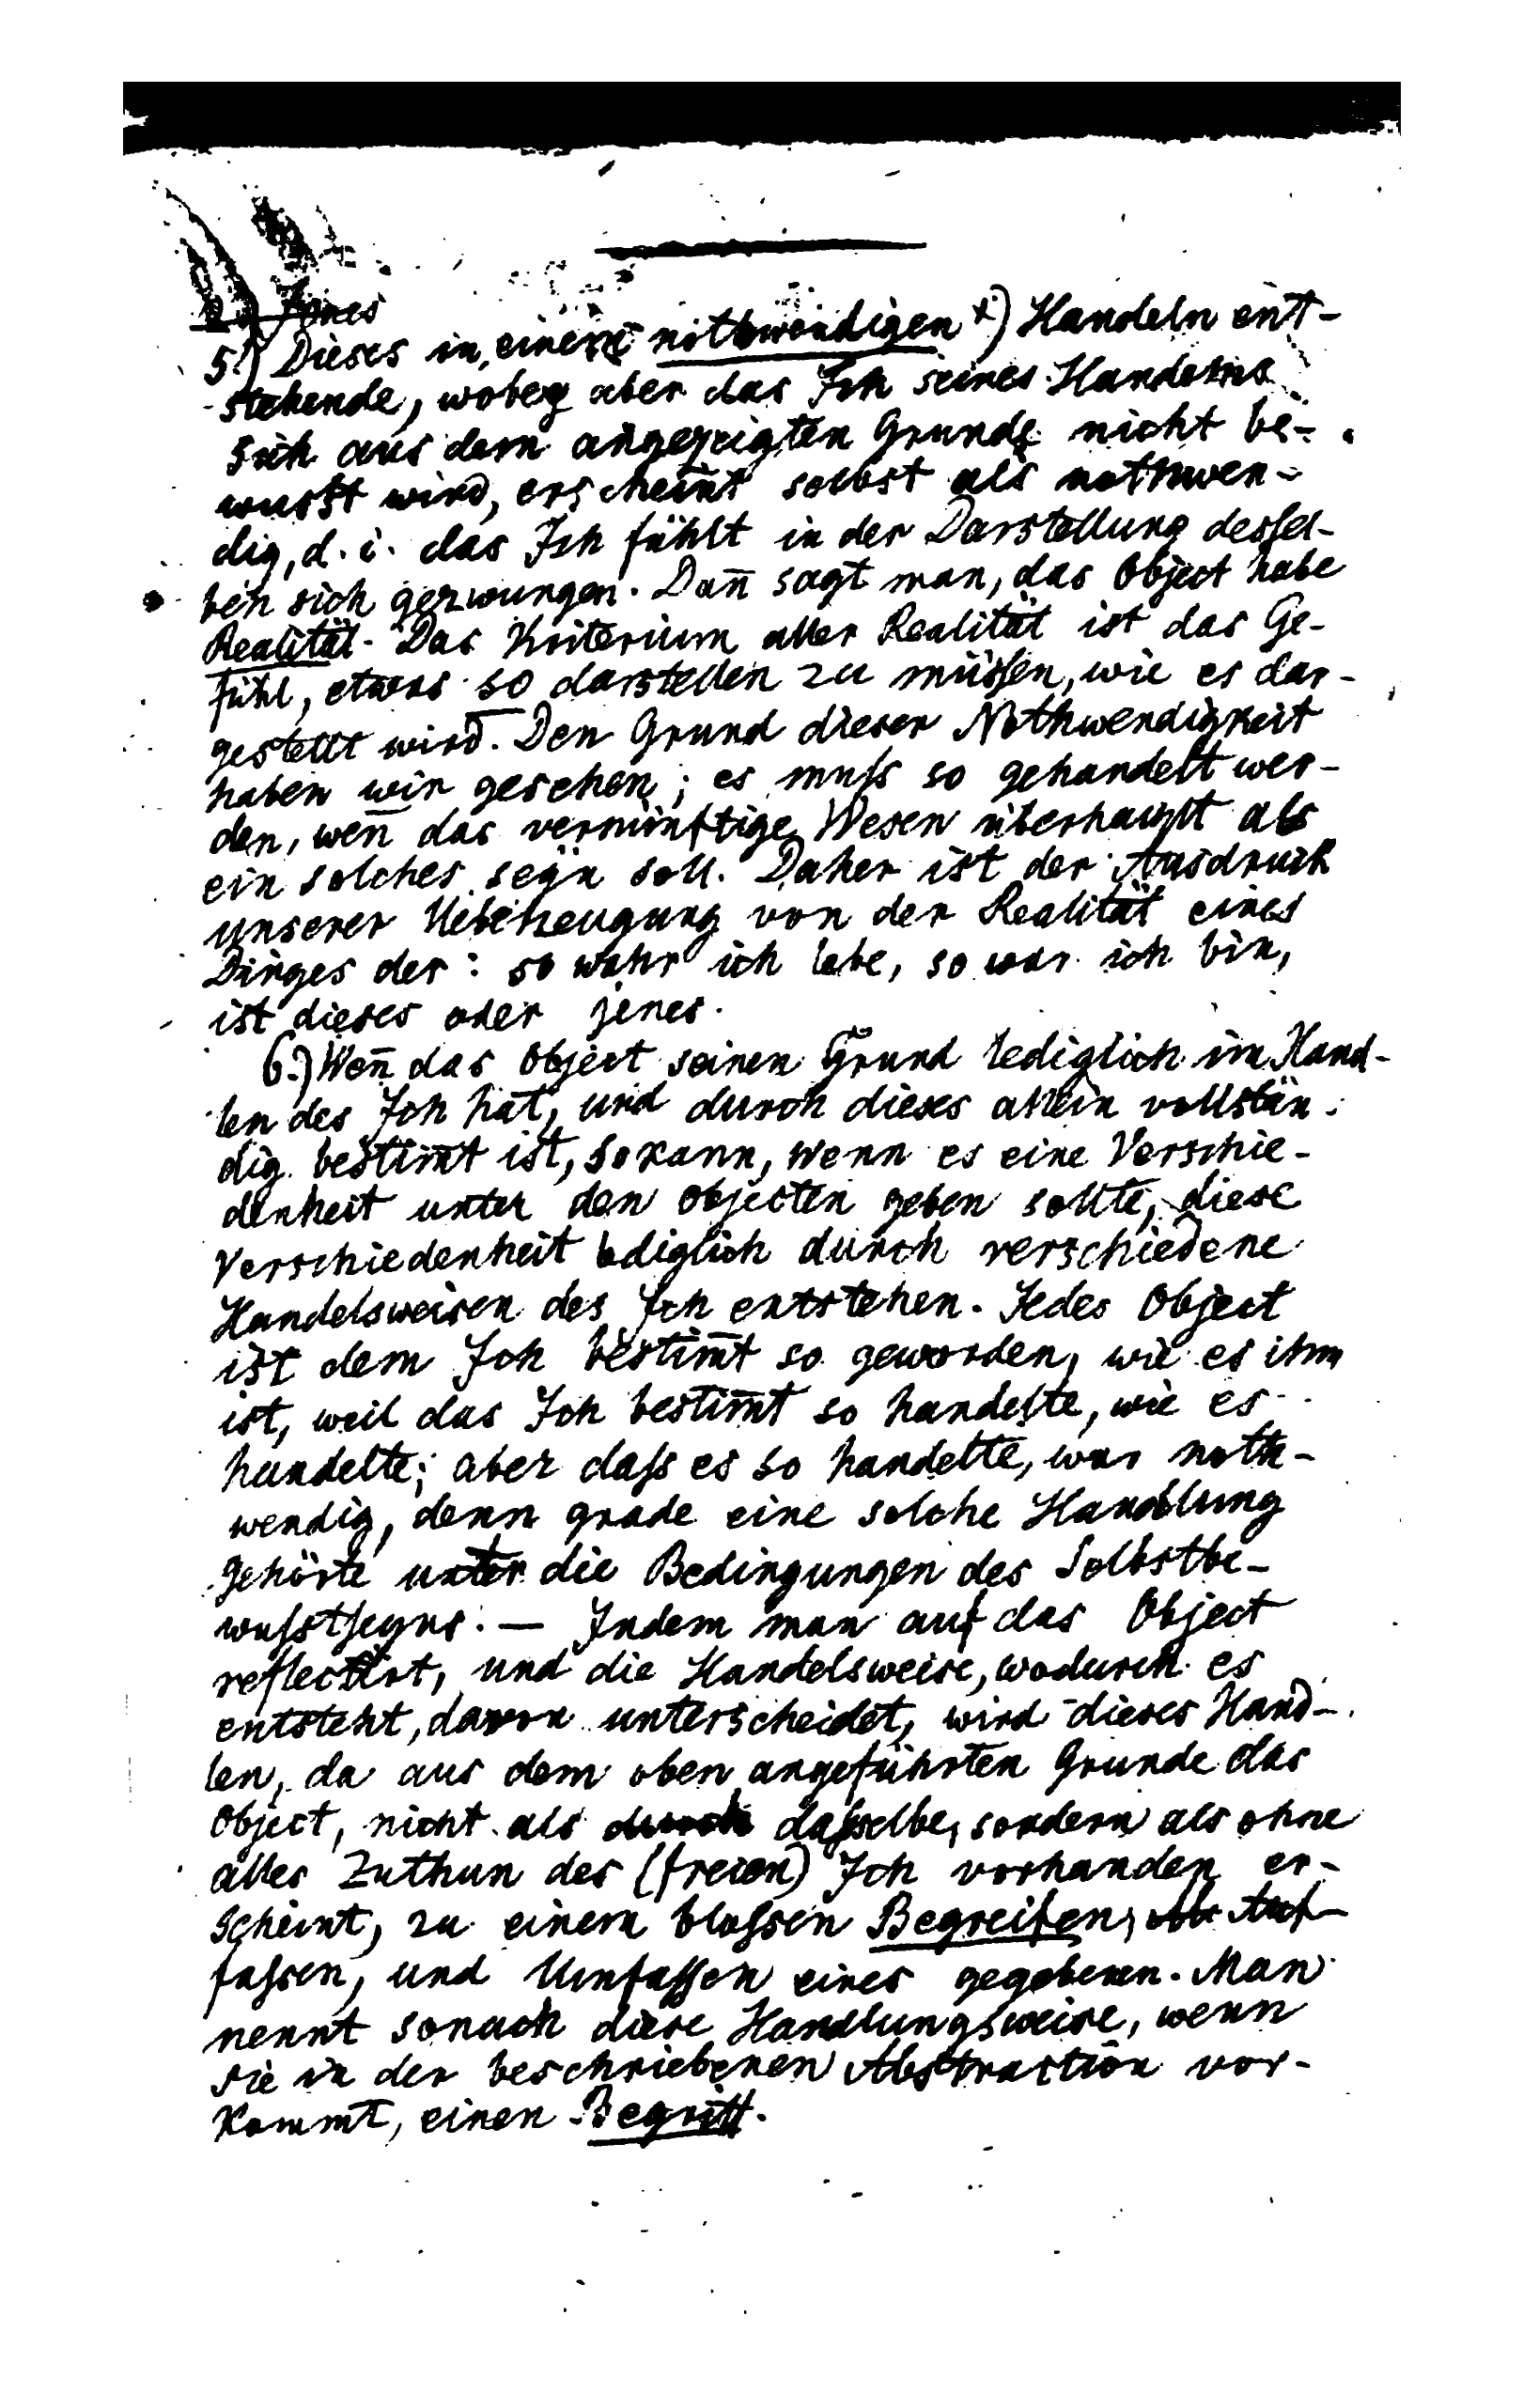 2.) Jenes
5.) Dieses in, einem nothwendigen x) Handeln ent-
stehende, wobey aber das Ich seines Handelns
sich aus dem angezeigten Grunde nicht be-
wusst wird, erscheint selbst als nothwen-
dig, d. i. das Ich fühlt in der Darstellung dessel-
ben sich gezwungen. Dan̄ sagt man, das Object habe
Realität. Das Kriterium aller Realität ist das Ge-
fühl, etwas so darstellen zu müssen, wie es dar-
gestellt wird. Den Grund dieser Nothwendigkeit
haben wir gesehen; es muss so gehandelt wer-
den, wen̄ das vernünftige Wesen überhaupt als
ein solches seÿn soll. Daher ist der Ausdruck
unserer Ueberzeugung von der Realität eines
Dinges der: so wahr ich lebe, so war ich bin,
ist dieses oder jenes.
6.) Wen̄ das Object seinen Grund lediglich im Hand-
len des Ich hat, und durch dieses allein vollstän-
dig bestim̄t ist, so kann, wenn es eine Verschie-
denheit unter den Objecten geben sollte, diese
Verschiedenheit lediglich durch verschiedene
Handelsweisen des Ich entstehen. Jedes Object
ist dem Ich bestim̄t so geworden, wie es ihm
ist, weil das Ich bestim̄t so handelte, wie es
handelte; aber dass es so handelte, war noth-
wendig, denn grade eine solche Handlung
gehörte unter die Bedingungen des Selbstbe-
wusstseyns. — Indem man auf das Object
reflectirt, und die Handelsweise, wodurch es
entsteht, davon unterscheidet, wird dieses Hand-
len, da aus dem oben angeführten Grunde das
Object, nicht als durch dasselbe, sondern als ohne
alles Zuthun des (freien) Ich vorhanden er-
scheint, zu einem blossen Begreifen, Auf-
fassen, und Umfassen eines gegebenen. Man
nennt sonach diese Handlungsweise, wenn
sie in der beschriebenen Abstraction vor-
kommt, einen Begriff.